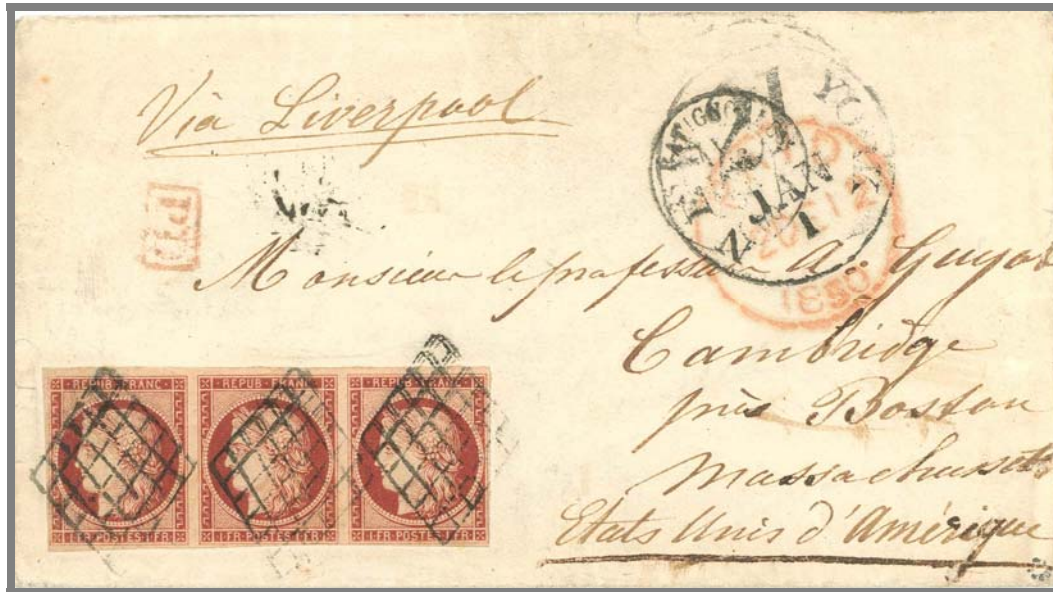 Via Liverpool
YORK
NEW
BATIGNOLLES
JAN
1
PAID
12
1850
P.P.
Monsieur le professeur A. Guyot
Cambridge
près Boston
Massachusetts
Etats Unis d'Amérique
REPUB FRANC
REPUB FRANC
REPUB FRANC
1 FR POSTES 1 FR
1 FR POSTES 1 FR
1 FR POSTES 1 FR